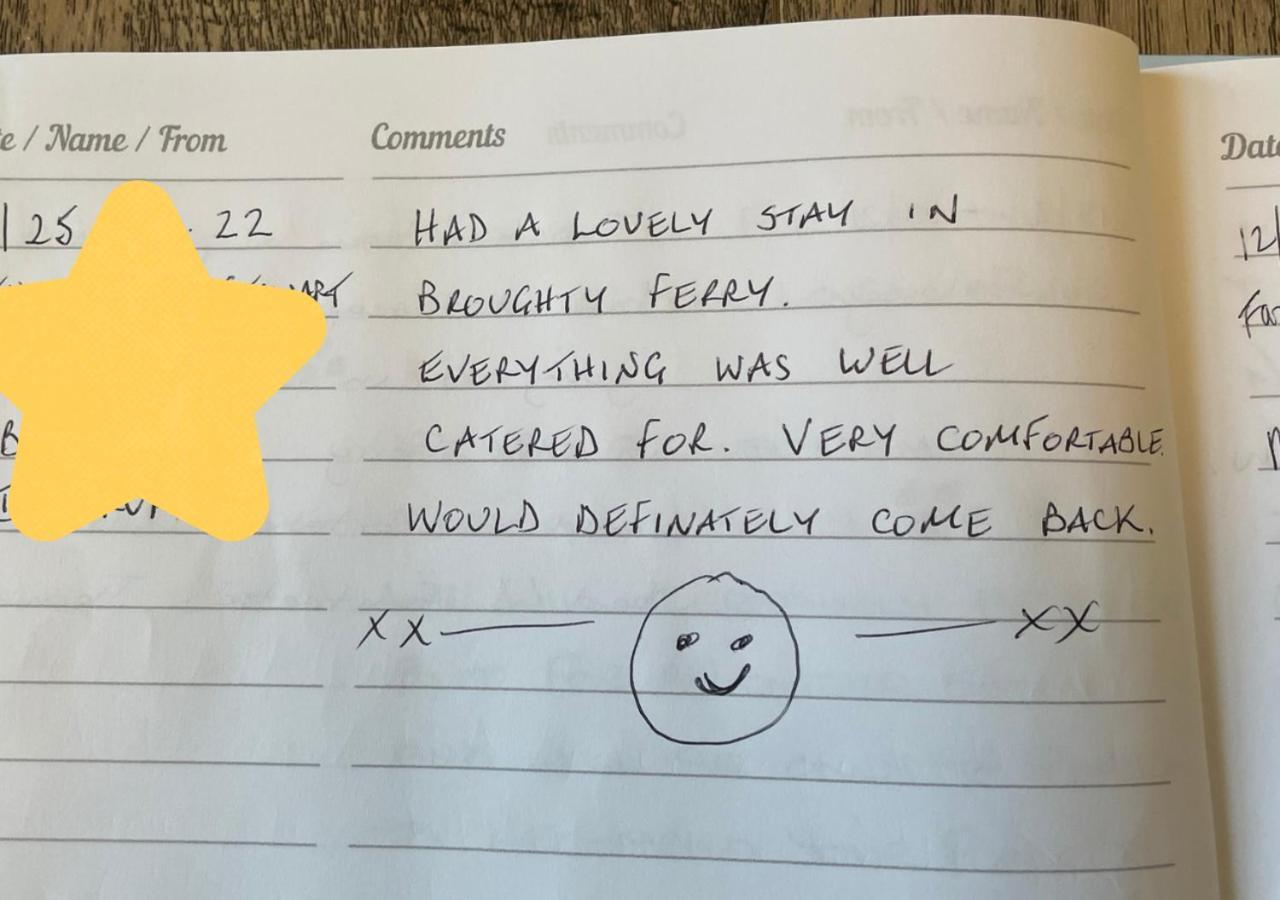 / Name / From Comments
25 22 HAD A LOVELY STAY IN
BROUGHTY FERRY.
EVERYTHING WAS WELL
CATERED FOR. VERY COMFORTABLE.
WOULD DEFINATELY COME BACK.
XX XX
12/